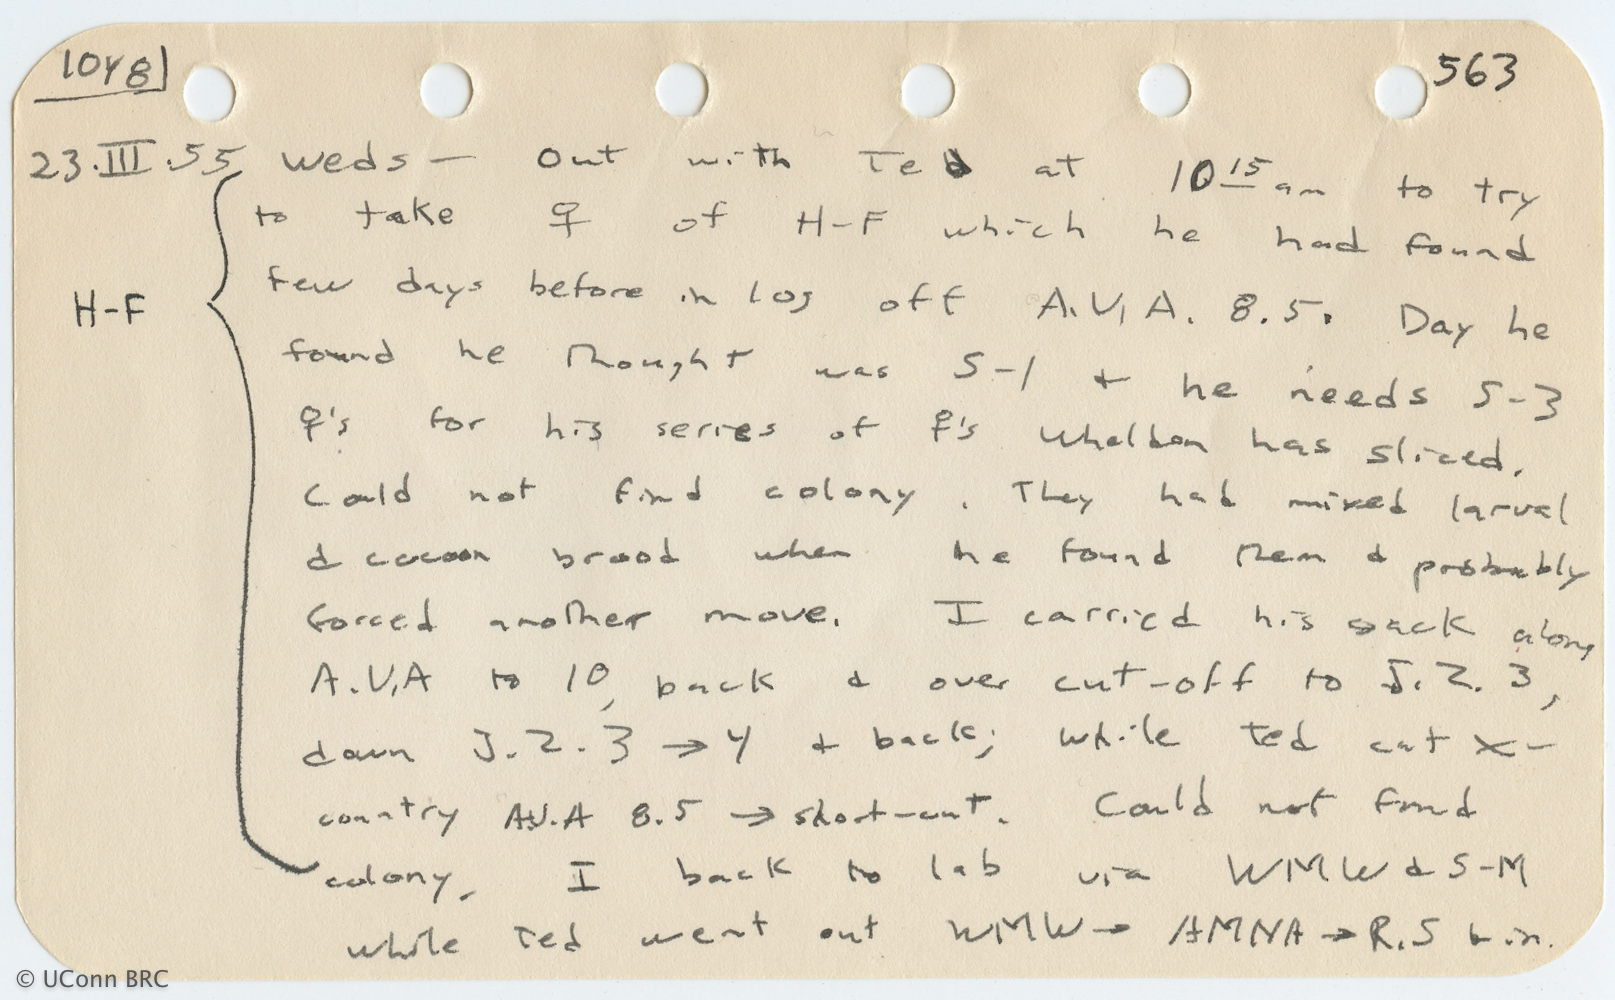 1048 563
23.III.55 Weds — Out with Ted at 10 15 am to try
to take ♀ of H-F which he had found
H-F few days before in log off A.V.A. 8.5. Day he
found he thought was S-1 & he needs S-3
♀'s for his series of ♀'s Whelden has sliced.
Could not find colony. They had mixed larval
& cocoon brood when he found them & probably
forced another move. I carried his sack along
A.V.A to 10, back & over cut-off to J.Z. 3,
down J.Z. 3 → 4 & back; while Ted cut x-
country A.V.A 8.5 → short-cut. Could not find
colony. I back to lab via WMW & S-M
while Ted went out WMW → AMNA → R.S &
© UConn BRC